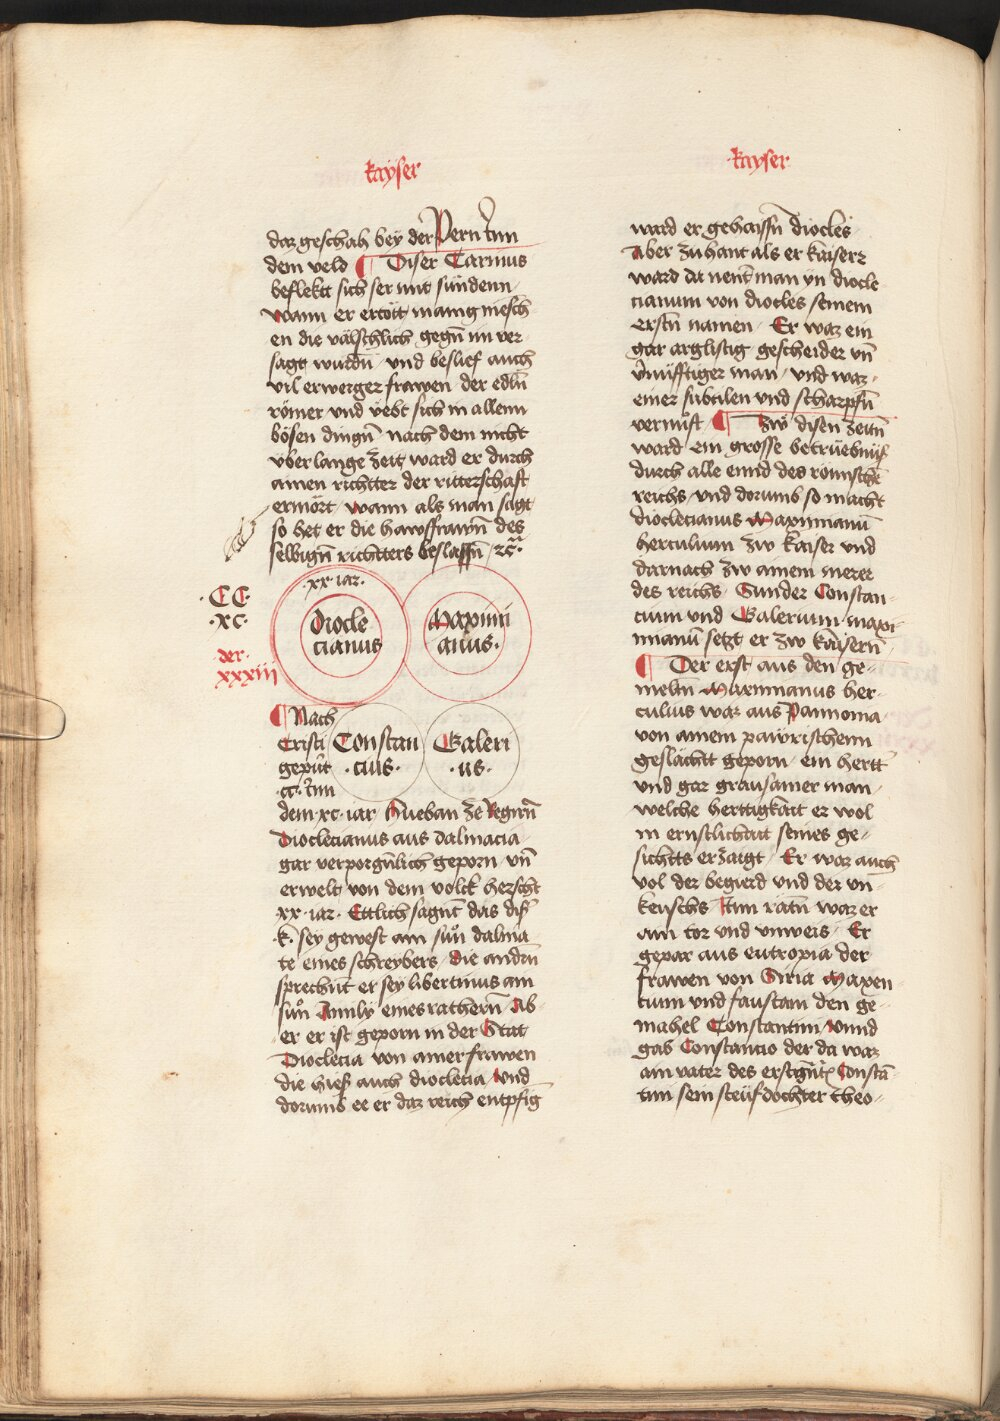 kayser
daz geschah bey der Pern Inn
dem veld ¶ Diser Carinus
beflekt sich ser mit sündenn
wann er ertött manig mensch
en die välschlich gegn im ver
sagt wurdn und beslief auch
vil erwerger frawen der edln
römer und vebt sich in allenn
bösen dingn nach dem nicht
vber lange zeit ward er durch
ainen richtter der ritterschaft
ermört wann als man sagt
so het er die hawsfrawn des
selbign richtters beslaffn ꝛc
·CC·
·xc·
der
xxxiii
·xx iar·
Diocle
cianus
Maximi
anus·
¶ Nach
Cristi
gepurt
·cc· Inn
Constan
·cius·
Galeri
·us·
dem ·xc· iar Hueban ze Regirn
Dioclecianus aus dalmacia
gar verporgnlich geporn vnd
erwelt von dem volck herscht
xx iar· Ettlich sagnt das diser
·k· sey gewest ain sun dalma
te eines schreybers die andrn
sprechnt er sey libertinus ain
sun Anuly eines ratherrn Ab-
er er ist geporn in der Stat
Dioclecia von ainer frawen
die hieß auch dioclecia Vnd
dorumb ee er daz reich entpfig
kayser
ward er gehaissn diocles
Aber zuhant als er kaiser
ward da nent man yn diocle
cianum von diocles seinem
erstn namen Er waz ein
gar arglistig gescheider vn
vernüfftiger man und waz
einer subtilen und scharpfn
vernuft ¶ Zw disen zeitn
ward ein grosse betrüebnüs
durch alle ennd des römische
reichs und dorumb so macht
dioclecianus Maximianu
herculium zw kaiser und
darnach zw ainem merer
des reichs Sunder Constan-
cium und Galerium maxi
mianu setzt er zw kaisern
¶ Der erst aus den ge-
meltn Maximianus her-
culius waz aus Pannonia
von ainem pawrischenn
geslächtt geporn ein hertt
und gar grausamer man
welche herttigkait er wol
in ernstlichait seines ge-
sichtts erzaigt Er waz auch
vol der begierd und der un-
keuschs Inn ratn waz er
ain tor und unweis Er
gepar aus eutropia der
frawen von Siria Maxen
cium und faustam den ge-
mahel Constantini Vnnd
gab Constancio der da waz
ain vater des erstgntn Constan
tini sein steüfdochter theo-